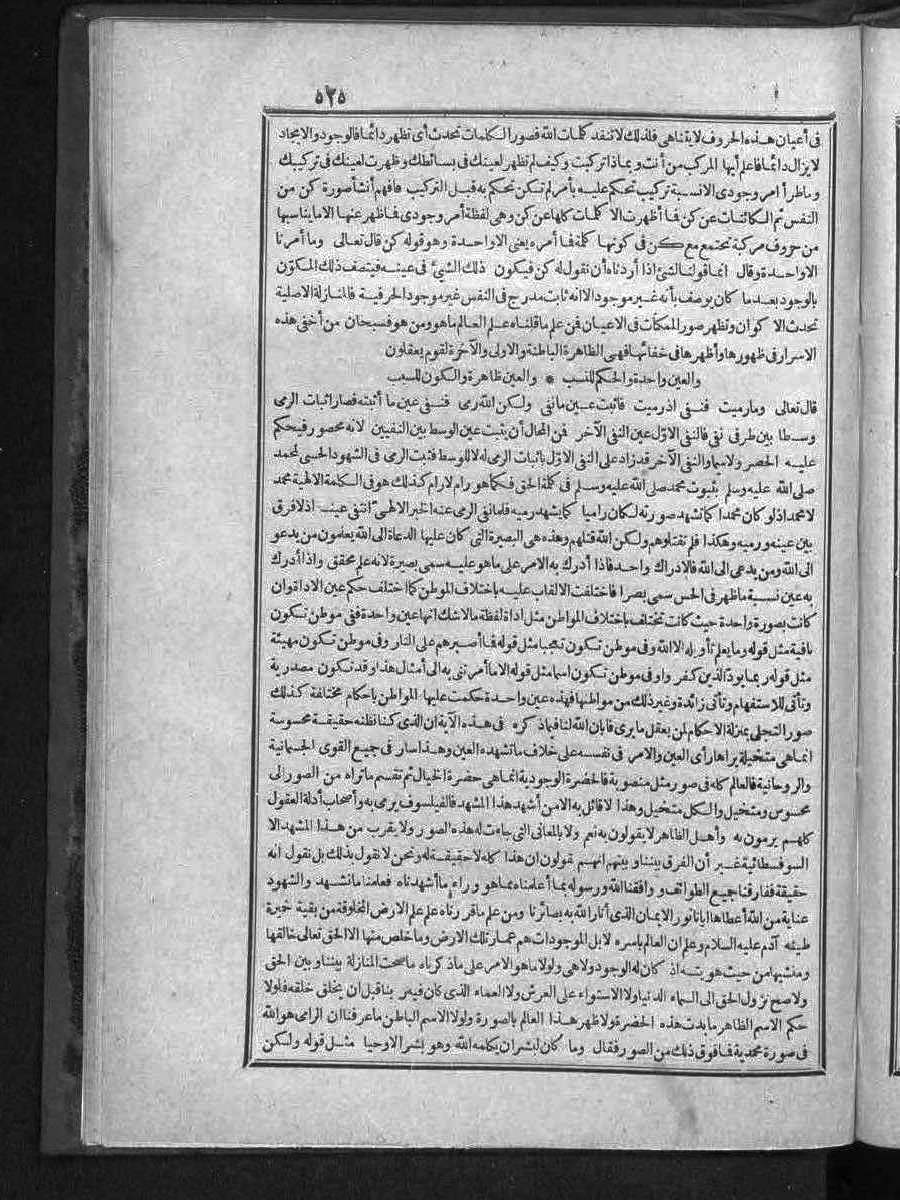 ٥٢٥
فى أعيان هذه الحروف لا يتناهى فلذلك لا تنفد كلمات الله فصور الكلمات تحدث أى تظهر دائما فالوجود والايجاد
لا يزال دائما فاعلم أيها المركب من أنت وبماذا تركبت وكيف لم تظهر لعينك فى بسائطك وظهرت لعينك فى تركيبك
وما طرأ أمر وجودى الا نسبة تركيب تحكم عليه بأمر لم تكن تحكم به قبل التركيب فافهم أنشأ صورة كن من
النفس ثم الكائنات عن كن فما أظهرت الا كلمات كلها عن كن وهى لفظة أمر وجودى فما ظهر عنها الا ما يناسبها
من حروف مركبة تجتمع مع كن فى كونها كلمة فما أمره يعنى الا واحدة وهو قوله كن قال تعالى وما أمرنا
الا واحدة وقال انما قولنا لشئ اذا أردناه أن نقول له كن فيكون ذلك الشئ فى عينه فيتصف ذلك المكون
بالوجود بعد ما كان يوصف بأنه غير موجود الا انه ثابت مدرج فى النفس غير موجود الحرفية فالمنازلة الاصلية
تحدث الاكوان وتظهر صور الممكنات فى الاعيان فمن علم ما قلناه علم العالم ما هو ومن هو فسبحان من أخفى هذه
الاسرار فى ظهورها وأظهرها فى خفائها فهى الظاهرة الباطنة والاولى والآخرة لقوم يعقلون
والعين واحدة والحكم للنسب * والعين ظاهرة والكون للسبب
قال تعالى وما رميت فنفى اذ رميت فأثبت عين ما نفى ولكن الله رمى فنفى عين ما أثبته فصار اثبات الرمى
وسطا بين طرفى نفى فالنفى الاول عين النفى الآخر فمن المحال أن يثبت عين الوسط بين النفيين لانه محصور فيحكم
عليه الحصر ولا سيما والنفى الآخر قد زاد على النفى الاول باثبات الرمى له لا للوسط فثبت الرمى فى الشهود الحسى لمحمد
صلى الله عليه وسلم بثبوت محمد صلى الله عليه وسلم فى كلمة الحق فكما هو رام لا رام كذلك هو فى الكلمة الالهية محمد
لا محمد اذ لو كان محمدا كما تشهد صورته لكان راميا كما يشهد رميه فلما نفى الرمى عنه الخبر الالهى انتفى عينه اذ لا فرق
بين عينه ورميه وهكذا فلم تقتلوهم ولكن الله قتلهم وهذه هى البصيرة التى كان عليها الدعاة الى الله يعلمون من يدعو
الى الله ومن يدعى الى الله فالادراك واحد فاذا أدرك به الامر على ما هو عليه سمى بصيرة لانه علم محقق واذا أدرك
به عين نسبة ما ظهر فى الحس سمى بصرا فاختلفت الالقاب عليه باختلاف الموطن كما اختلف حكم عين الاداة وان
كانت بصورة واحدة حيث كانت تختلف باختلاف المواطن مثل أداة لفظة ما لا شك انها عين واحدة ففى موطن تكون
نافية مثل قوله وما يعلم تأويله الا الله وفى موطن تكون تعجبا مثل قوله فما أصبرهم على النار وفى موطن تكون مهيئة
مثل قوله ربما يود الذين كفروا وفى موطن تكون اسما مثل قوله الا ما أمرتنى به الى أمثال هذا وقد تكون مصدرية
وتأتى للاستفهام وتأتى زائدة وغير ذلك من مواطنها فهذه عين واحدة حكمت عليها المواطن باحكام مختلفة كذلك
صور التجلى بمنزلة الاحكام لمن يعقل ما يرى فابان الله لنا فيما ذكره فى هذه الآية ان الذى كنا نظنه حقيقة محسوسة
انما هى متخيلة يراها رأى العين والامر فى نفسه على خلاف ما تشهده العين وهذا سار فى جميع القوى الجسمانية
والروحانية فالعالم كله فى صور مثل منصوبة فالحضرة الوجودية انما هى حضرة الخيال ثم تقسم ما تراه من الصور الى
محسوس ومتخيل والكل متخيل وهذا لا قائل به الا من أشهد هذا المشهد فالفيلسوف يرمى به وأصحاب أدلة العقول
كلهم يرمون به وأهل الظاهر لا يقولون به نعم ولا بالمعانى التى جاءت له هذه الصور ولا يقرب من هذا المشهد الا
السوفسطائية غير أن الفرق بيننا وبينهم انهم يقولون ان هذا كله لا حقيقة له ونحن لا نقول بذلك بل نقول انه
حقيقة ففارقنا جميع الطوائف ووافقنا الله ورسوله بما أعلمناه مما هو وراء ما أشهدناه فعلمنا ما نشهد والشهود
عناية من الله أعطاها ايانا نور الايمان الذى أنار الله به بصائرنا ومن علم ما قررناه علم علم الارض المخلوقة من بقية خميرة
طينة آدم عليه السلام وعلم ان العالم باسره لا بل الموجودات هم عمار تلك الارض وما خلص منها الا الحق تعالى خالقها
ومنشيها من حيث هويته اذ كان له الوجود ولا هى ولولا ما هو الامر على ما ذكرناه ما صحت المنازلة بيننا وبين الحق
ولا صح نزول الحق الى السماء الدنيا ولا الاستواء على العرش ولا العماء الذى كان فيه ربنا قبل ان يخلق خلقه فلولا
حكم الاسم الظاهر ما بدت هذه الحضرة ولا ظهر هذا العالم بالصورة ولولا الاسم الباطن ما عرفنا ان الرامى هو الله
فى صورة محمدية فما فوق ذلك من الصور فقال وما كان لبشر ان يكلمه الله وهو بشر الا وحيا مثل قوله ولكن